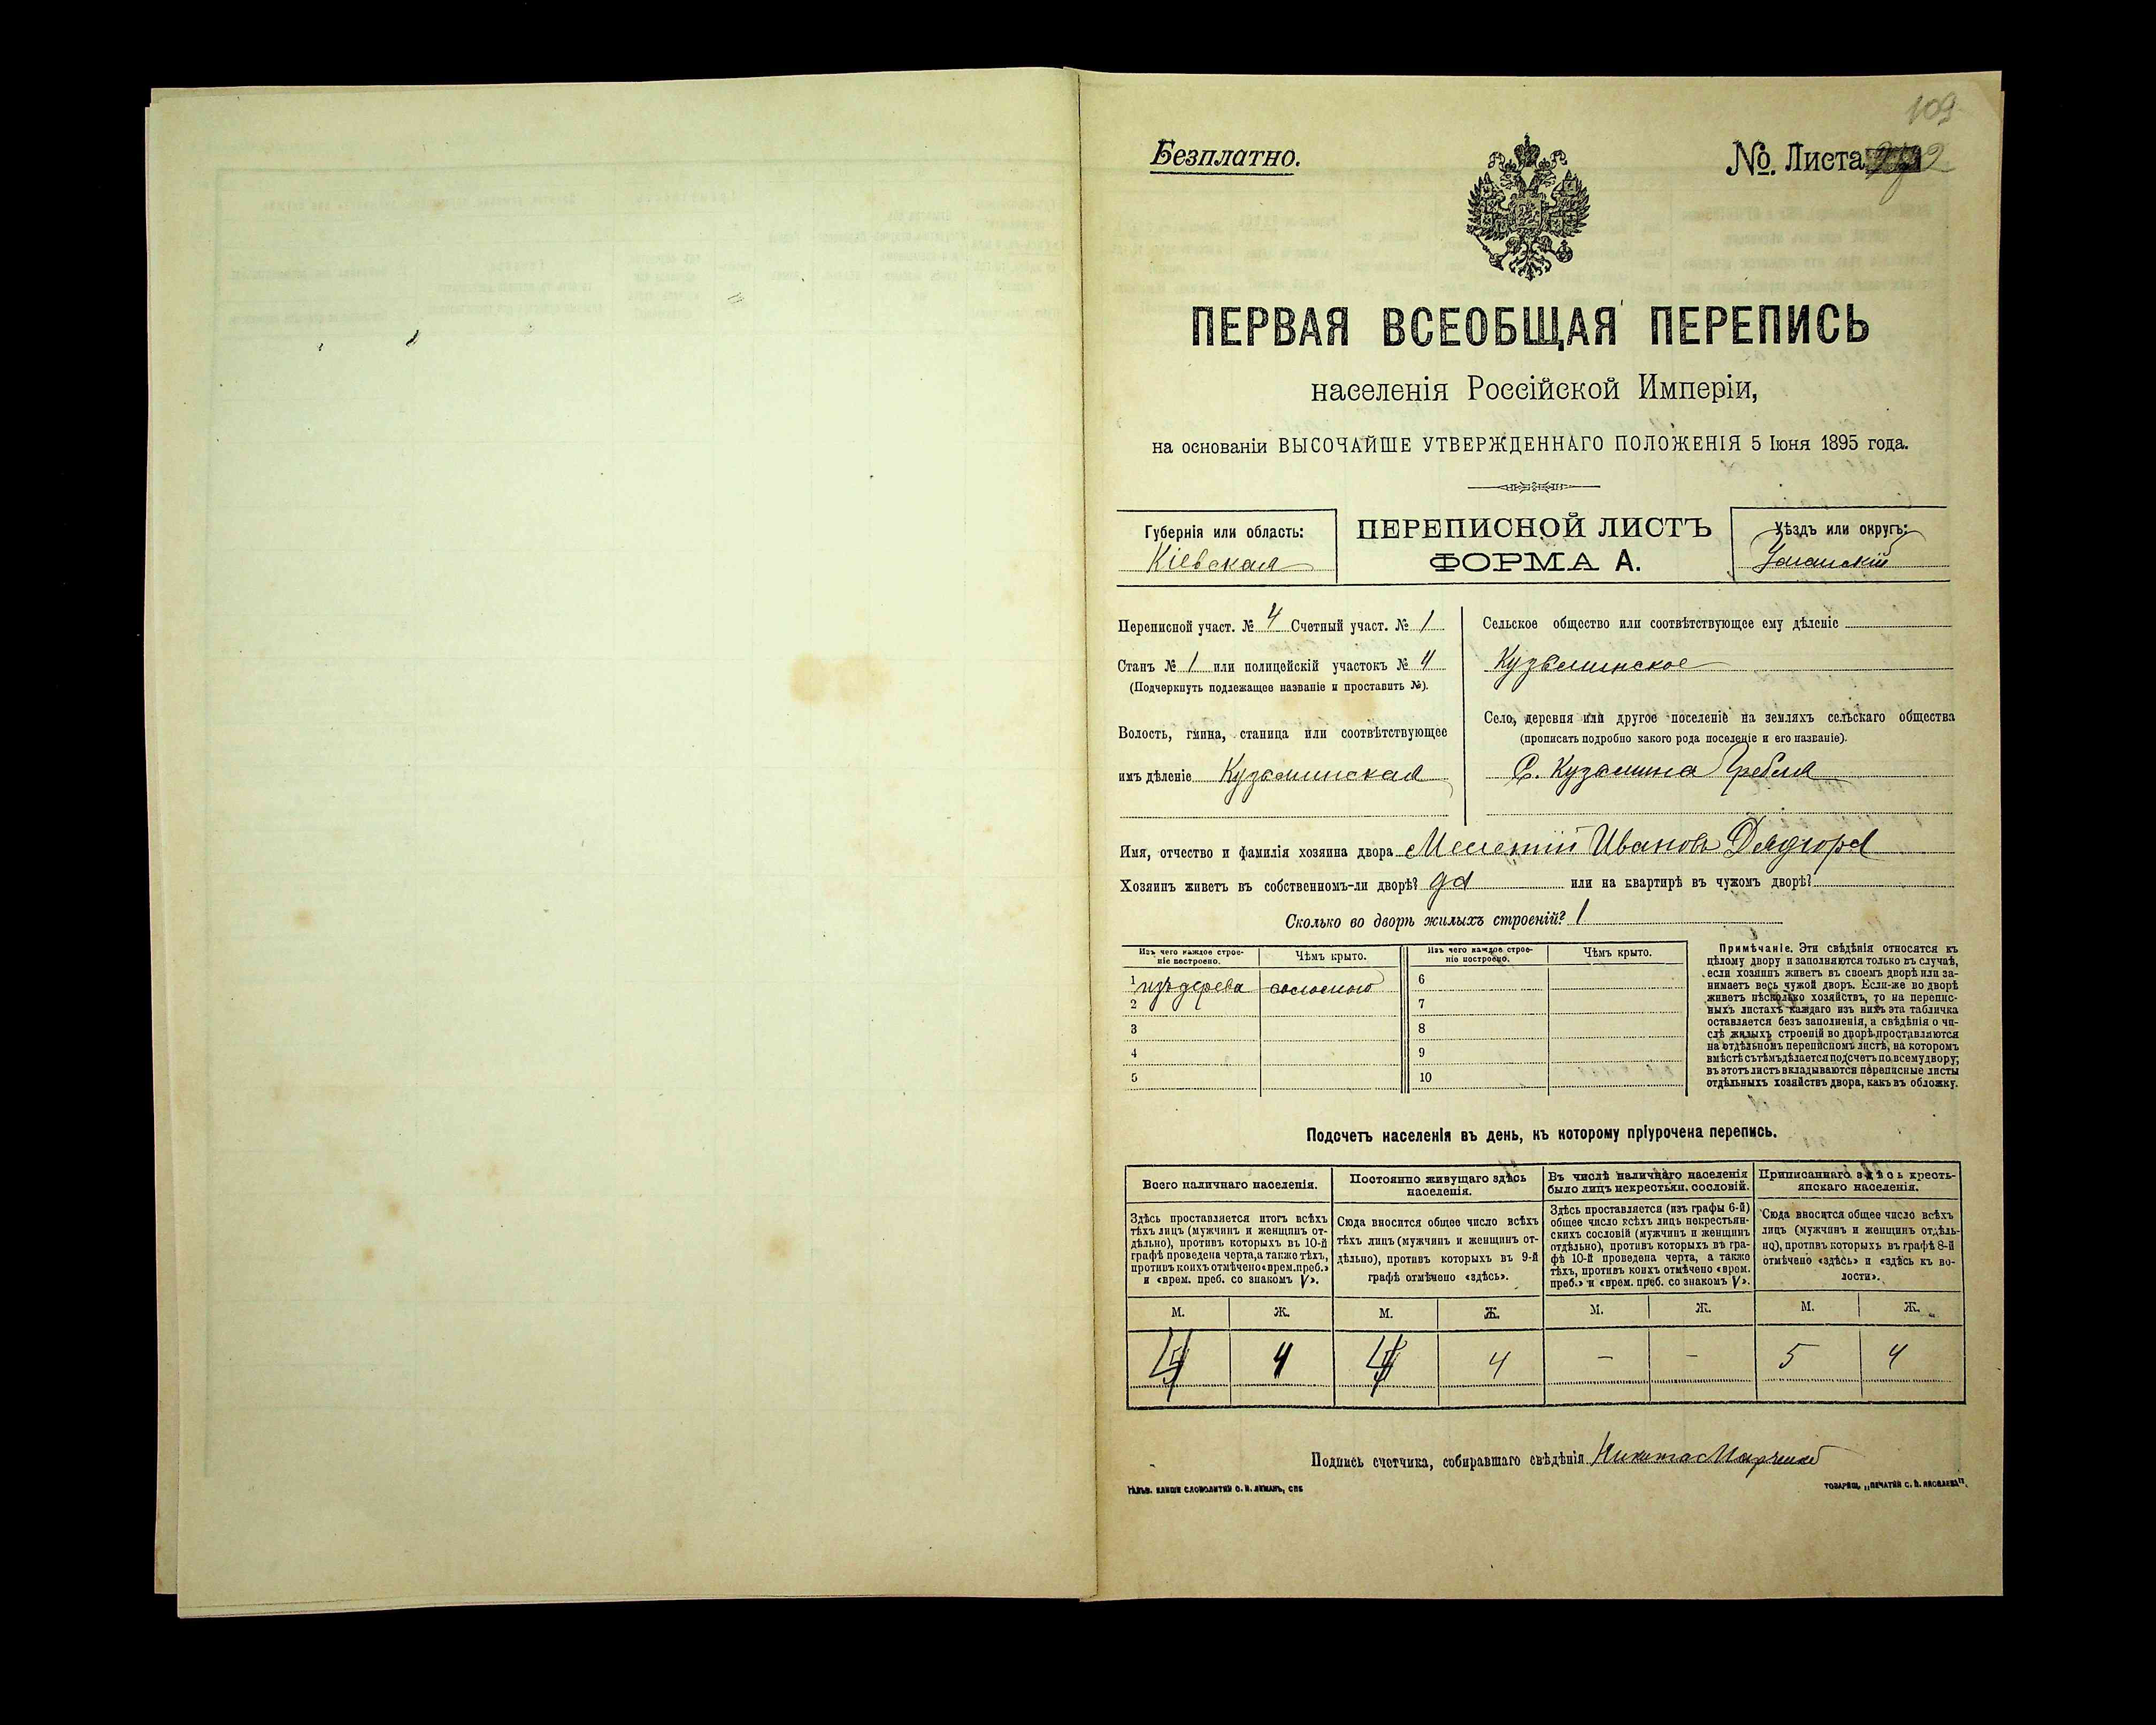 109
Безплатно.
№. Листа
ПЕРВАЯ ВСЕОБЩАЯ ПЕРЕПИСЬ
населенія Россійской Имперіи,
на основаніи ВЫСОЧАЙШЕ УТВЕРЖДЕННАГО ПОЛОЖЕНІЯ 5 Іюня 1895 года.
Губернія или область:
Кіевская
ПЕРЕПИСНОЙ ЛИСТЪ
ФОРМА А.
Уѣздъ или округъ:
Уманскій
Переписной участ. № 4 Счетный участ. № 1
Станъ № 1 или полицейскій участокъ № 4
(Подчеркнуть подлежащее названіе и проставить №).
Волость, гмина, станица или соотвѣтствующее
имъ дѣленіе Кузьминская
Сельское общество или соотвѣтствующее ему дѣленіе
Кузьминское
Село, деревня или другое поселеніе на земляхъ сельскаго общества
(прописать подробно какого рода поселеніе и его названіе).
С. Кузьмина Гребля
Имя, отчество и фамилія хозяина двора Мелетій Ивановъ Дядюра
Хозяинъ живетъ въ собственномъ-ли дворѣ? да или на квартирѣ въ чужомъ дворѣ?
Сколько во дворѣ жилыхъ строеній? 1
Изъ чего каждое строе-
ніе построено.
Чѣмъ крыто.
Изъ чего каждое строе-
ніе построено.
Чѣмъ крыто.
1 изъ дерева соломою 6
2 7
3 8
4 9
5 10
Примѣчаніе. Эти свѣдѣнія относятся къ
цѣлому двору и заполняются только въ случаѣ,
если хозяинъ живетъ въ своемъ дворѣ или за-
нимаетъ весь чужой дворъ. Если-же во дворѣ
живетъ нѣсколько хозяйствъ, то на перепис-
ныхъ листахъ каждаго изъ нихъ эта табличка
оставляется безъ заполненія, а свѣдѣнія о чи-
слѣ жилыхъ строеній во дворѣ проставляются
на отдѣльномъ переписномъ листѣ, на которомъ
вмѣстѣ съ тѣмъ дѣлается подсчетъ по всему двору;
въ этотъ листъ вкладываются переписные листы
отдѣльныхъ хозяйствъ двора, какъ въ обложку.
Подсчетъ населенія въ день, къ которому пріурочена перепись.
Всего наличнаго населенія.
Здѣсь проставляется итогъ всѣхъ
тѣхъ лицъ (мужчинъ и женщинъ от-
дѣльно), противъ которыхъ въ 10-й
графѣ проведена черта, а также тѣхъ,
противъ коихъ отмѣчено «врем. преб.»
и «врем. преб. со знакомъ V».
Постоянно живущаго здѣсь
населенія.
Сюда вносится общее число всѣхъ
тѣхъ лицъ (мужчинъ и женщинъ от-
дѣльно), противъ которыхъ въ 9-й
графѣ отмѣчено «здѣсь».
Въ числѣ наличнаго населенія
было лицъ некрестьян. сословій.
Здѣсь проставляется (изъ графы 6-й)
общее число всѣхъ лицъ некрестьян-
скихъ сословій (мужчинъ и женщинъ
отдѣльно), противъ которыхъ въ гра-
фѣ 10-й проведена черта, а также
тѣхъ, противъ коихъ отмѣчено «врем.
преб.» и «врем. преб. со знакомъ V».
Приписаннаго здѣсь кресть-
янскаго населенія.
Сюда вносится общее число всѣхъ
лицъ (мужчинъ и женщинъ отдѣль-
но), противъ которыхъ въ графѣ 8-й
отмѣчено «здѣсь» и «здѣсь къ во-
лости».
М. Ж. М. Ж. М. Ж. М. Ж.
4 4 4 – – 5 4
Подпись счетчика, собиравшаго свѣдѣнія Никита
ГАЛЬВ. КЛИШЕ СЛОВОЛИТНИ О. И. ЛЕМАНЪ, СПБ
ТОВАРИЩ. „ПЕЧАТНЯ С. П. ЯКОВЛЕВА".